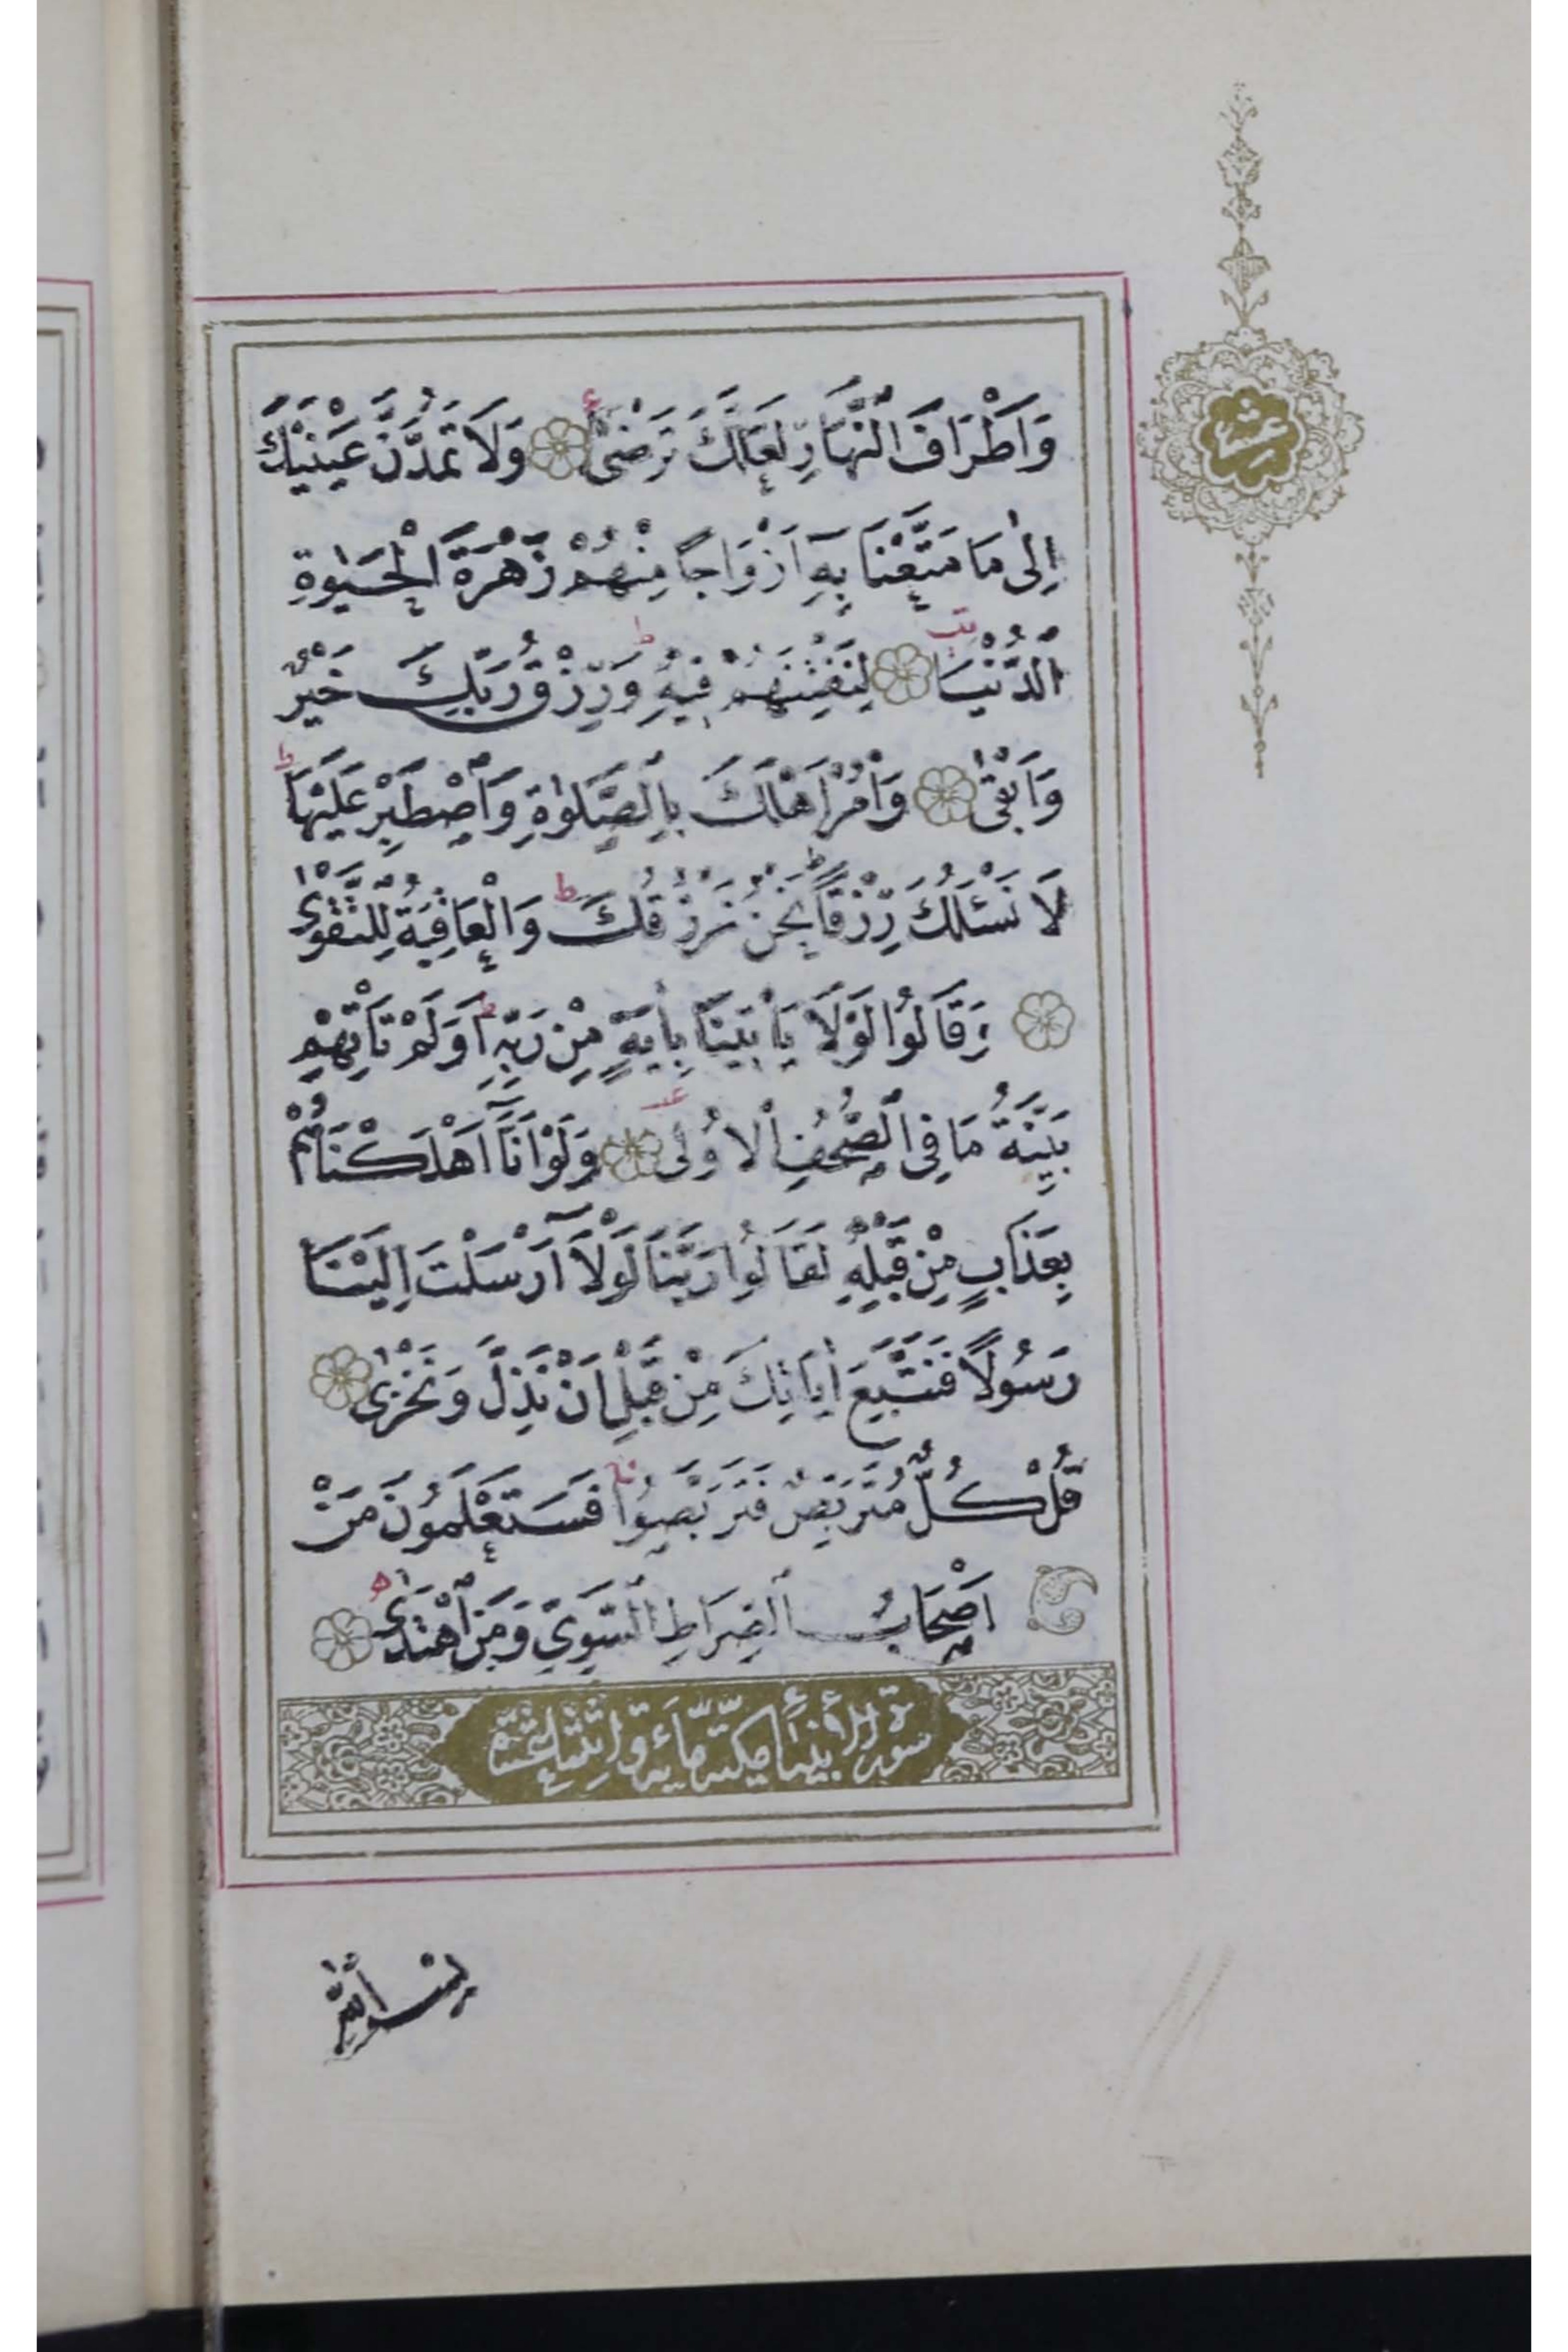 وَاَطْرَافَ النَّهَارِ لَعَلَّكَ تَرْضٰى وَلَا تَمُدَّنَّ عَيْنَيْكَ
عشر
اِلٰى مَا مَتَّعْنَا بِهٖٓ اَزْوَاجًا مِنْهُمْ زَهْرَةَ الْحَيٰوةِ
الدُّنْيَا لِنَفْتِنَهُمْ فِيهِ وَرِزْقُ رَبِّكَ خَيْرٌ
وَاَبْقٰى وَأْمُرْ اَهْلَكَ بِالصَّلٰوةِ وَاصْطَبِرْ عَلَيْهَا
لَا نَسْـَٔلُكَ رِزْقًا نَحْنُ نَرْزُقُكَ وَالْعَاقِبَةُ لِلتَّقْوٰى
وَقَالُوا لَوْلَا يَأْتِينَا بِاٰيَةٍ مِنْ رَبِّهٖ اَوَلَمْ تَأْتِهِمْ
بَيِّنَةُ مَا فِى الصُّحُفِ الْاُولٰى وَلَوْ اَنَّٓا اَهْلَكْنَاهُمْ
بِعَذَابٍ مِنْ قَبْلِهٖ لَقَالُوا رَبَّنَا لَوْلَٓا اَرْسَلْتَ اِلَيْنَا
رَسُولًا فَنَتَّبِعَ اٰيَاتِكَ مِنْ قَبْلِ اَنْ نَذِلَّ وَنَخْزٰى
قُلْ كُلٌّ مُتَرَبِّصٌ فَتَرَبَّصُوا فَسَتَعْلَمُونَ مَنْ
اَصْحَابُ الصِّرَاطِ السَّوِيِّ وَمَنِ اهْتَدٰى
سورة الأنبياء مكية مأية واثنتا عشرة
بسم الله